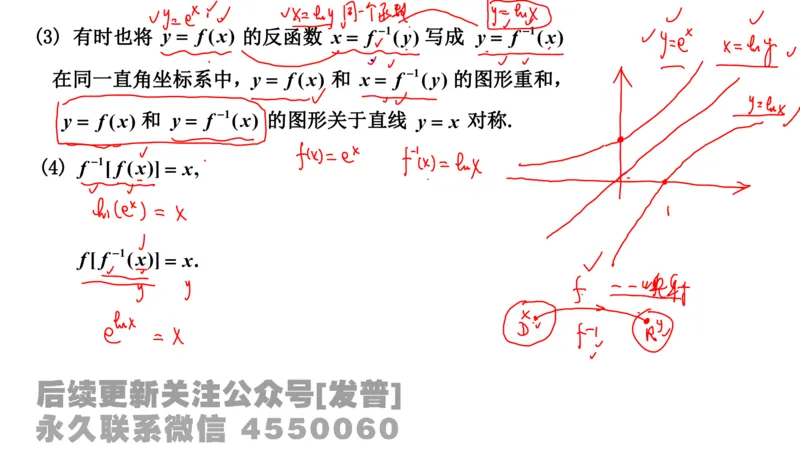 y=eˣ x=ln y 同一个函数 y=ln x
(3) 有时也将 y = f(x) 的反函数 x = f⁻¹(y) 写成 y = f⁻¹(x)
y=eˣ x=ln y
在同一直角坐标系中, y = f(x) 和 x = f⁻¹(y) 的图形重和,
y=ln x
y = f(x) 和 y = f⁻¹(x) 的图形关于直线 y = x 对称.
f(x)=eˣ f⁻¹(x)=ln x
(4) f⁻¹[f(x)] = x,
ln(eˣ) = x
1
f[f⁻¹(x)] = x.
y y
f 一一映射
x y
D R
f⁻¹
e^{ln x} = x
后续更新关注公众号[发普]
永久联系微信 4550060